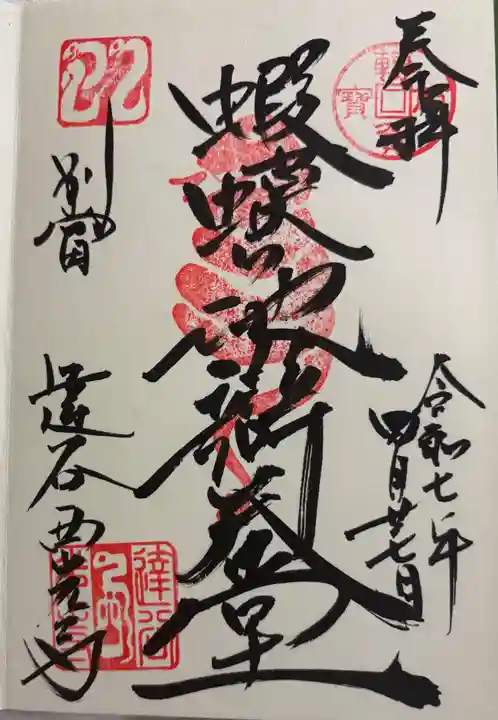 奉拝
令和七年
四月廿七日
蝦蟆ヶ池辯天堂
別當
達谷西光寺